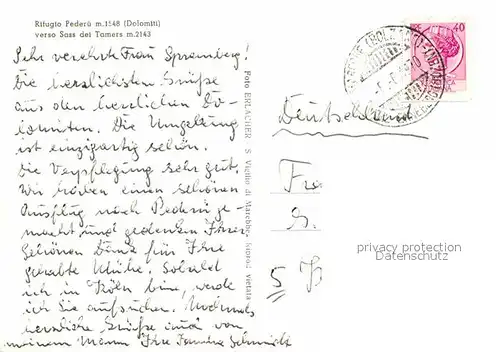 Rifugio Pederü m.1548 (Dolomiti)
verso Sass dei Tamers m.2143
Sehr verehrte Frau Spremberg!
Die herzlichsten Grüße
aus den herrlichen Do-
lomiten. Die Umgebung
ist einzigartig schön.
Die Verpflegung sehr gut.
Wir haben einen schönen
Ausflug nach Pederü ge-
macht und gedenken Ihrer
Schönen Dank für Ihre
gehabte Mühe. Sobald
ich in Köln bin, werde
ich Sie aufsuchen. Nochmals
herzliche Grüße und von
meinem Mann Ihre Familie Schmidt
Foto ERLACHER - S. Vigilio di Marebbe - Riprod. vietata
40
Deutschland
Fra
S.
5
privacy protection
Datenschutz